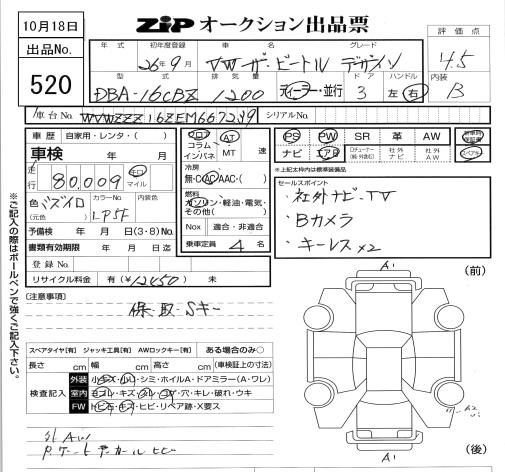 10月18日
ZIP オークション出品票
出品No.
520
年式 初年度登録 車名 グレード
26年9月 VW ザ・ビートル デザイン
型式 排気量 ドア ハンドル
DBA-16CBZ 1200 ディーラー・並行 3 左 右
評価点
4.5
内装
B
車台No. WVWZZZ16ZEM667239 シリアルNo.
車歴 自家用・レンタ・( )
車検 年 月
走行 80,009 キロ マイル
色 (元色) カラーNo. LP5F 内装色
予備検 年 月 日(3・8)No.
書類有効期限 年 月 日迄
登録No.
リサイクル料金 有(¥12450) 未
フロア コラム インパネ
AT MT 速
冷房
無・C・AC・AAC・( )
燃料
ガソリン・軽油・電気・その他( )
Nox 適合・非適合
乗車定員 4 名
PS PW SR 革 AW
ナビ エアB 社外ナビ 社外AW
新車時保証書
スペアキー
*上記太枠内は標準装備品
セールスポイント
・社外ナビ・TV
・Bカメラ
・キーレス×2
※ご記入の際はボールペンで強くご記入下さい。
[注意事項]
保・取・Sキー
スペアタイヤ[有] ジャッキ工具[有] AWロックキー[有] ある場合のみ○
長さ cm 幅 cm 高さ cm (車検証上の寸法)
検査記入
外装 小キズ・小凹・シミ・ホイルA・ドアミラー(A・ワレ)
室内 ヨゴレ・キズ・スレ・コゲ・穴・キレ・破れ・ウキ
FW トビ石・キズ・ヒビ・リペア跡・X要ス
外AW
A1
(前)
A2
A1
(後)